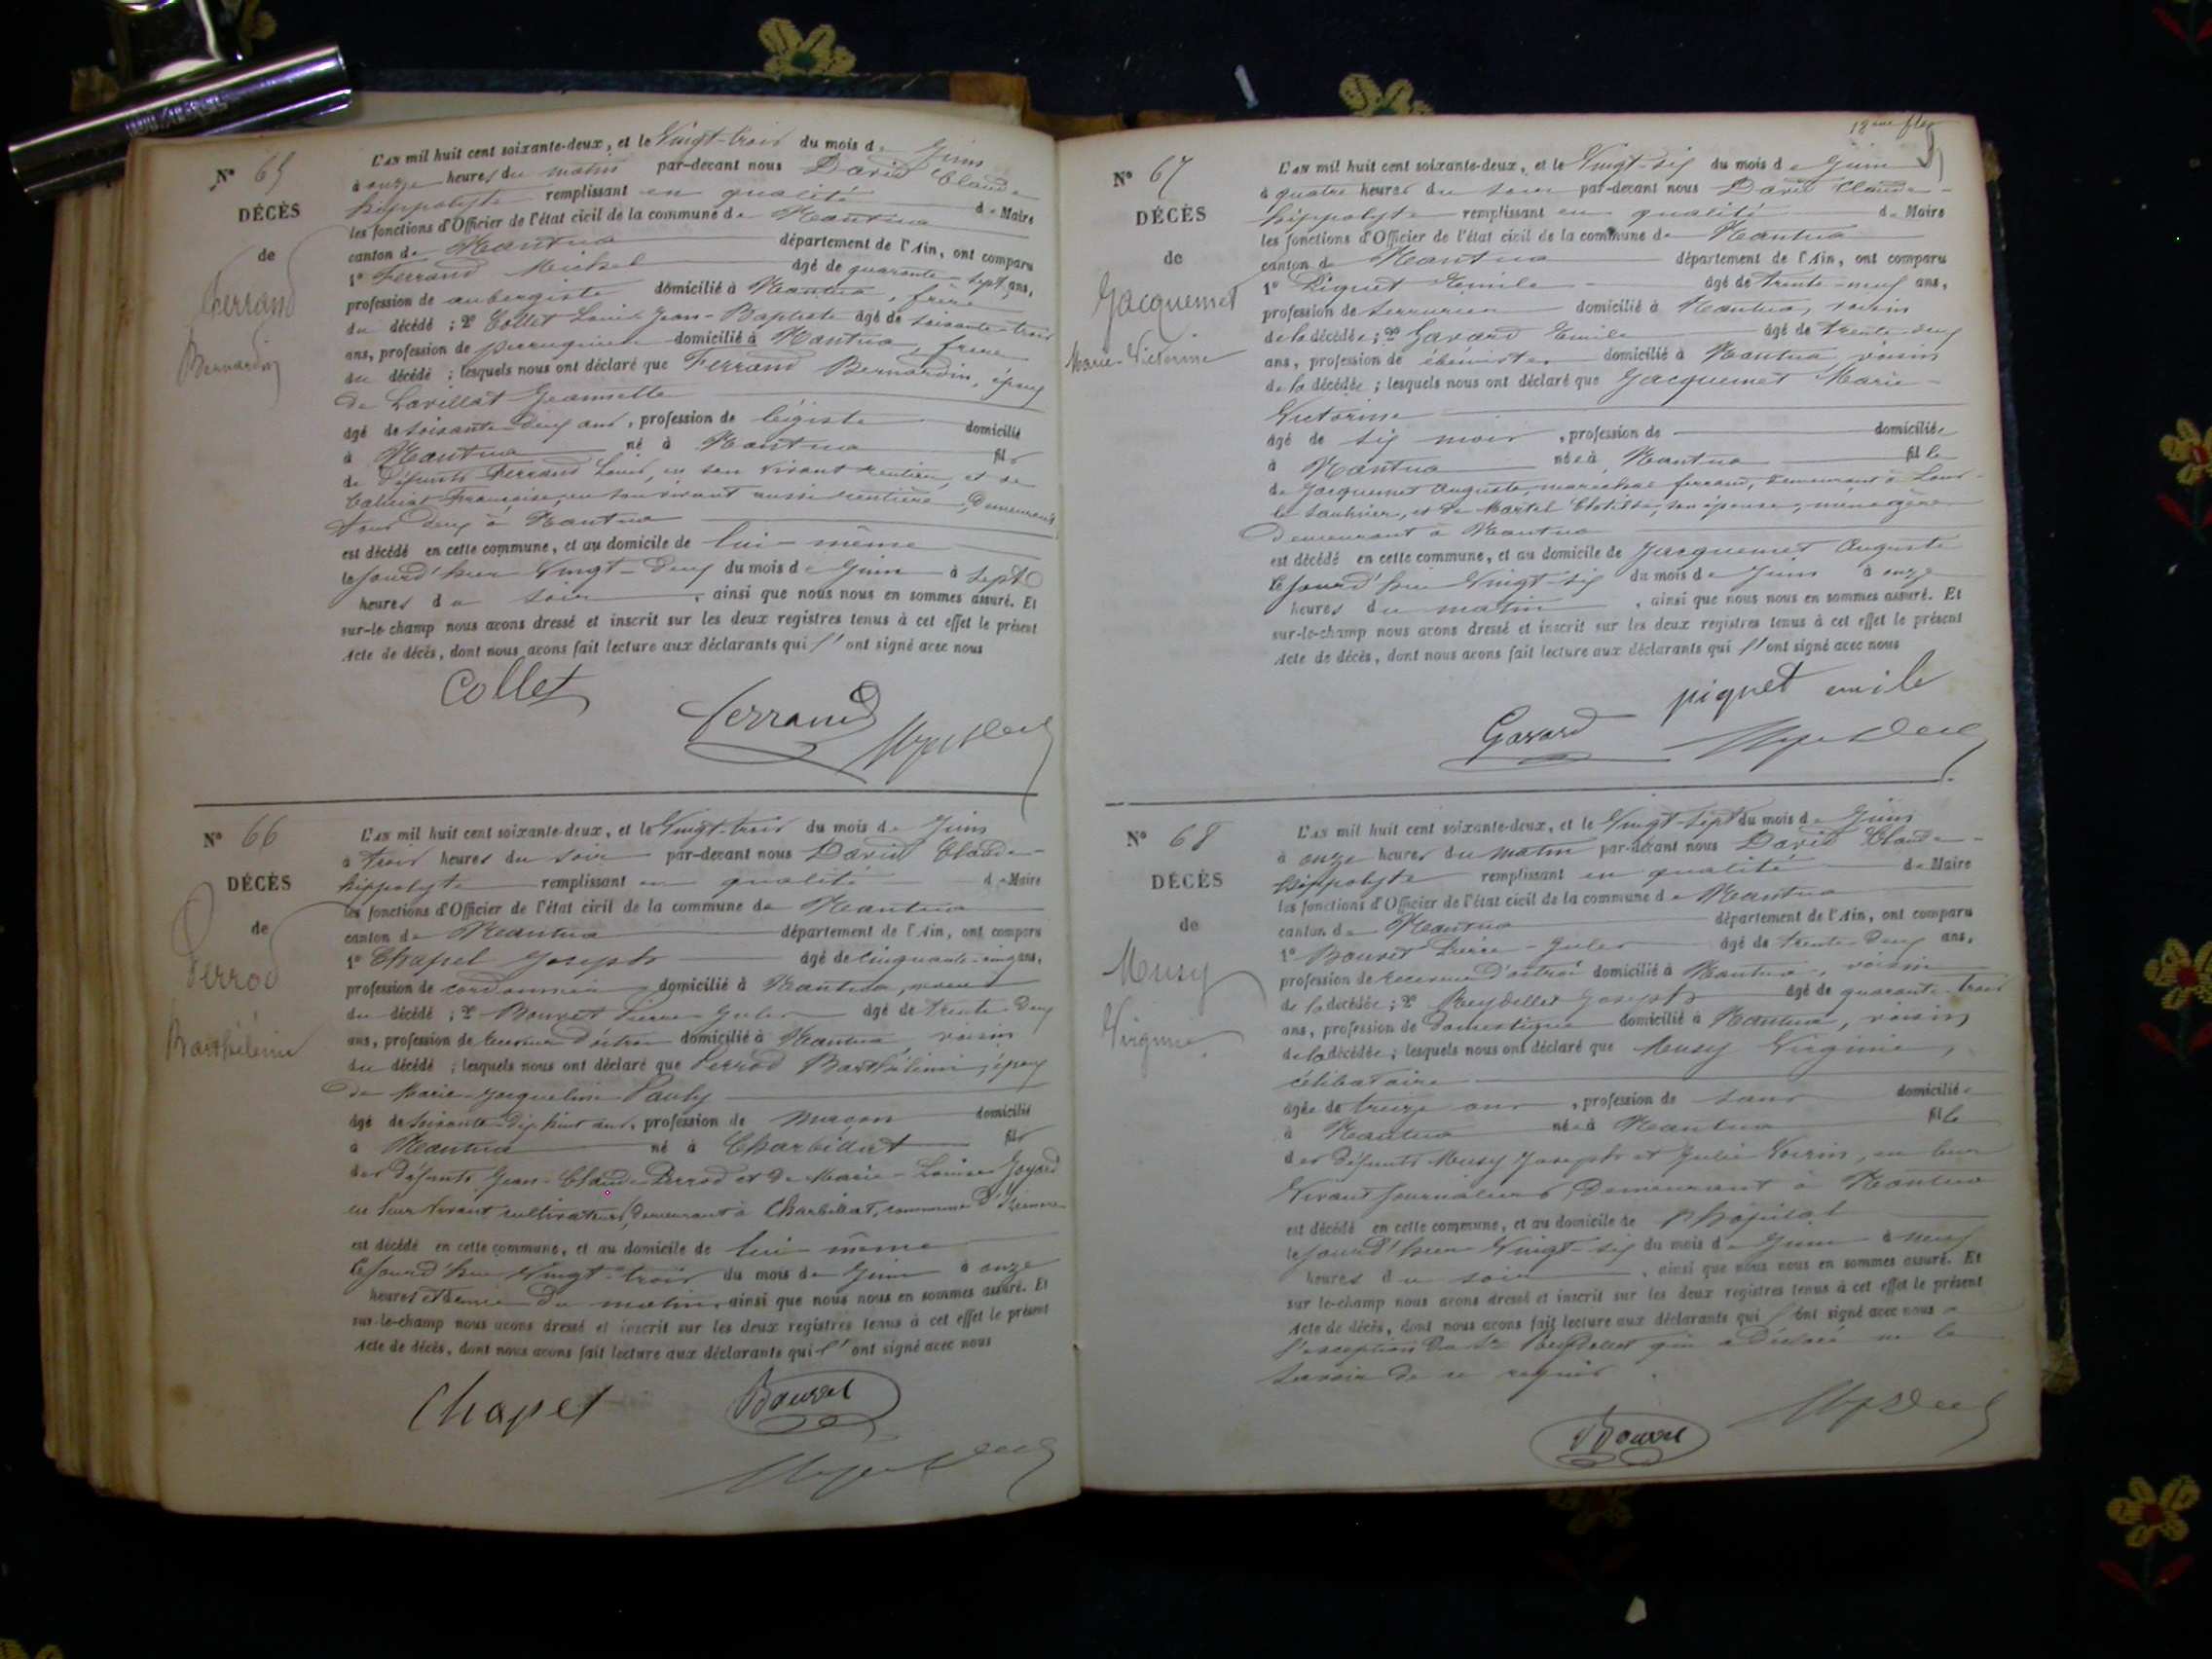 N° 65
DÉCÈS
de
Ferrand
Bernardin
L'AN mil huit cent soixante-deux, et le Vingt-trois du mois de Juin
à onze heures du matin par-devant nous David Claude
hippolyte remplissant en qualité de Maire
les fonctions d'Officier de l'état civil de la commune de Nantua
canton de Nantua département de l'Ain, ont comparu
1° Ferrand Michel âgé de quarante-sept ans,
profession de aubergiste domicilié à Nantua, frère
du décédé ; 2° Collet Louis Jean-Baptiste âgé de soixante-trois
ans, profession de perruquier domicilié à Nantua,
du décédé ; lesquels nous ont déclaré que Ferrand Bernardin, époux
de Lavillat Jeannette
âgé de soixante deux ans, profession de légiste domicilié
à Nantua né à Nantua fils
de défunts Ferrand Louis, en son vivant rentier, et de
Françoise, en son vivant aussi rentière, demeurant
tous deux à Nantua
est décédé en cette commune, et au domicile de lui-même
le jourd'hier Vingt-deux du mois de Juin à sept
heures du soir, ainsi que nous nous en sommes assuré. Et
sur-le-champ nous avons dressé et inscrit sur les deux registres tenus à cet effet le présent
Acte de décès, dont nous avons fait lecture aux déclarants qui l'ont signé avec nous
Collet
ferrand
N° 66
DÉCÈS
de
Perrod
Barthélémi
L'AN mil huit cent soixante-deux, et le Vingt-trois du mois de Juin
à trois heures du soir par-devant nous David Claude-
hippolyte remplissant en qualité de Maire
les fonctions d'Officier de l'état civil de la commune de Nantua
canton de Nantua département de l'Ain, ont comparu
1° Chapel Joseph âgé de cinquante-cinq ans,
profession de cordonnier domicilié à Nantua,
du décédé ; 2° Bouvet Pierre Jules âgé de trente deux
ans, profession de receveur d'octroi domicilié à Nantua, voisin
du décédé ; lesquels nous ont déclaré que Perrod Barthélémi, époux
de Marie-Jacqueline Pauly
âgé de soixante-dix huit ans, profession de maçon domicilié
à Nantua né à Charbillat fils
des défunts Jean-Claude Perrod et de Marie-Louise Goyard
en leur vivant cultivateurs, demeurant à Charbillat, commune d'
est décédé en cette commune, et au domicile de lui-même
le jourd'hui Vingt-trois du mois de Juin à onze
heures et demie du matin, ainsi que nous nous en sommes assuré. Et
sur-le-champ nous avons dressé et inscrit sur les deux registres tenus à cet effet le présent
Acte de décès, dont nous avons fait lecture aux déclarants qui l'ont signé avec nous
Chapel
Bouvet
18eme
N° 67
DÉCÈS
de
Jacquemet
Marie-Victorine
L'AN mil huit cent soixante-deux, et le Vingt-six du mois de Juin
à quatre heures du soir par-devant nous David Claude-
hippolyte remplissant en qualité de Maire
les fonctions d'Officier de l'état civil de la commune de Nantua
canton de Nantua département de l'Ain, ont comparu
1° Piquet Emile âgé de trente-neuf ans,
profession de serrurier domicilié à Nantua, voisin
de la décédée ; 2° Gavard Emile âgé de trente-deux
ans, profession de ébéniste domicilié à Nantua voisin
de la décédée ; lesquels nous ont déclaré que Jacquemet Marie-
Victorine
âgé de six mois, profession de domiciliée
à Nantua née à Nantua fille
de Jacquemet Auguste, maréchal ferrand, demeurant à Lons-
le Saulnier, et de Martel Clotilde, son épouse, ménagère
demeurant à Nantua
est décédé en cette commune, et au domicile de Jacquemet Auguste
le jourd'hui Vingt-six du mois de Juin à onze
heures du matin, ainsi que nous nous en sommes assuré. Et
sur-le-champ nous avons dressé et inscrit sur les deux registres tenus à cet effet le présent
Acte de décès, dont nous avons fait lecture aux déclarants qui l'ont signé avec nous
piquet emile
Gavard
N° 68
DÉCÈS
de
Musy
Virginie
L'AN mil huit cent soixante-deux, et le Vingt-sept du mois de Juin
à onze heures du matin par-devant nous David Claude-
hippolyte remplissant en qualité de Maire
les fonctions d'Officier de l'état civil de la commune de Nantua
canton de Nantua département de l'Ain, ont comparu
1° Bouvet Pierre-Jules âgé de trente deux ans,
profession de receveur d'octroi domicilié à Nantua, voisin
de la décédée ; 2° Reydellet Joseph âgé de quarante-trois
ans, profession de domestique domicilié à Nantua, voisin
de la décédée ; lesquels nous ont déclaré que Musy Virginie,
célibataire
âgée de treize ans, profession de sans domiciliée
à Nantua née à Nantua fille
des défunts Musy Joseph et Julie Voirin, en leur
vivant journaliers, demeurant à Nantua
est décédé en cette commune, et au domicile de l'hôpital
le jourd'hier Vingt-six du mois de Juin à neuf
heures du soir, ainsi que nous nous en sommes assuré. Et
sur-le-champ nous avons dressé et inscrit sur les deux registres tenus à cet effet le présent
Acte de décès, dont nous avons fait lecture aux déclarants qui l'ont signé avec nous à
l'exception du Sr Reydellet qui a déclaré ne le
savoir de ce requis.
Bouvet